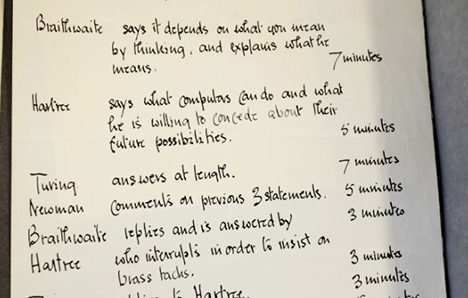 Braithwaite says it depends on what you mean
by thinking, and explains what he
means. 7 minutes
Hartree says what computors can do and what
he is willing to concede about their
future possibilities. 5 minutes
Turing answers at length. 7 minutes
Newman comments on previous 3 statements. 5 minutes
Braithwaite replies and is answered by 3 minutes
Hartree who interrupts in order to insist on
brass tacks. 3 minutes
to Hartree. 3 minutes